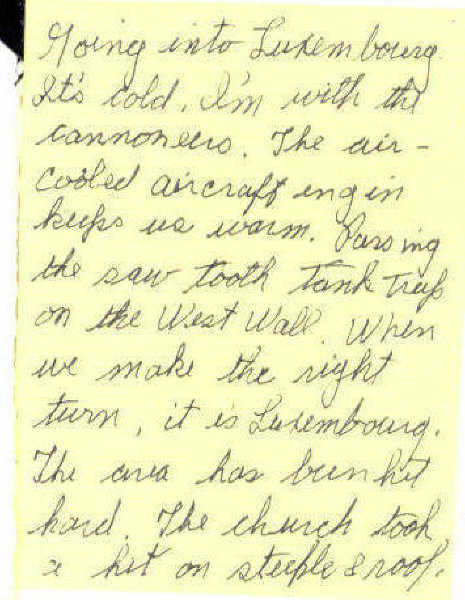 Going into Luxembourg.
It's cold, I'm with the
cannoneers. The air-
cooled aircraft engin
keeps us warm. Passing
the saw tooth Tank Traps
on the West Wall. When
we make the right
turn, it is Luxembourg.
The area has been hit
hard. The church took
a hit on steeple & roof.